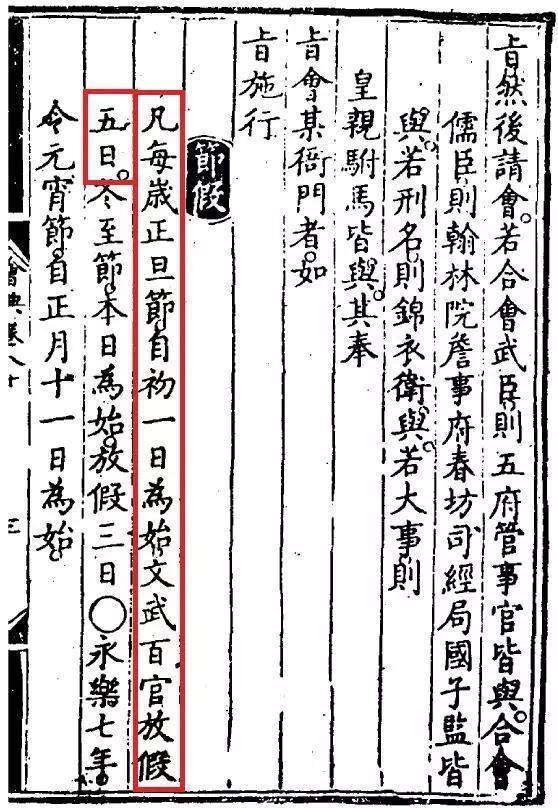 旨然後請會。若合會武臣則五府管事官皆與。合會
儒臣則翰林院詹事府春坊司經局國子監皆
與。若刑名則錦衣衛與。若大事則
皇親駙馬皆與。其奉
旨會某衙門者。如
旨施行
節假
凡每歲正旦節自初一日為始文武百官放假
五日。冬至節本日為始。放假三日〇永樂七年。
令元宵節自正月十一日為始
會典卷八十
三